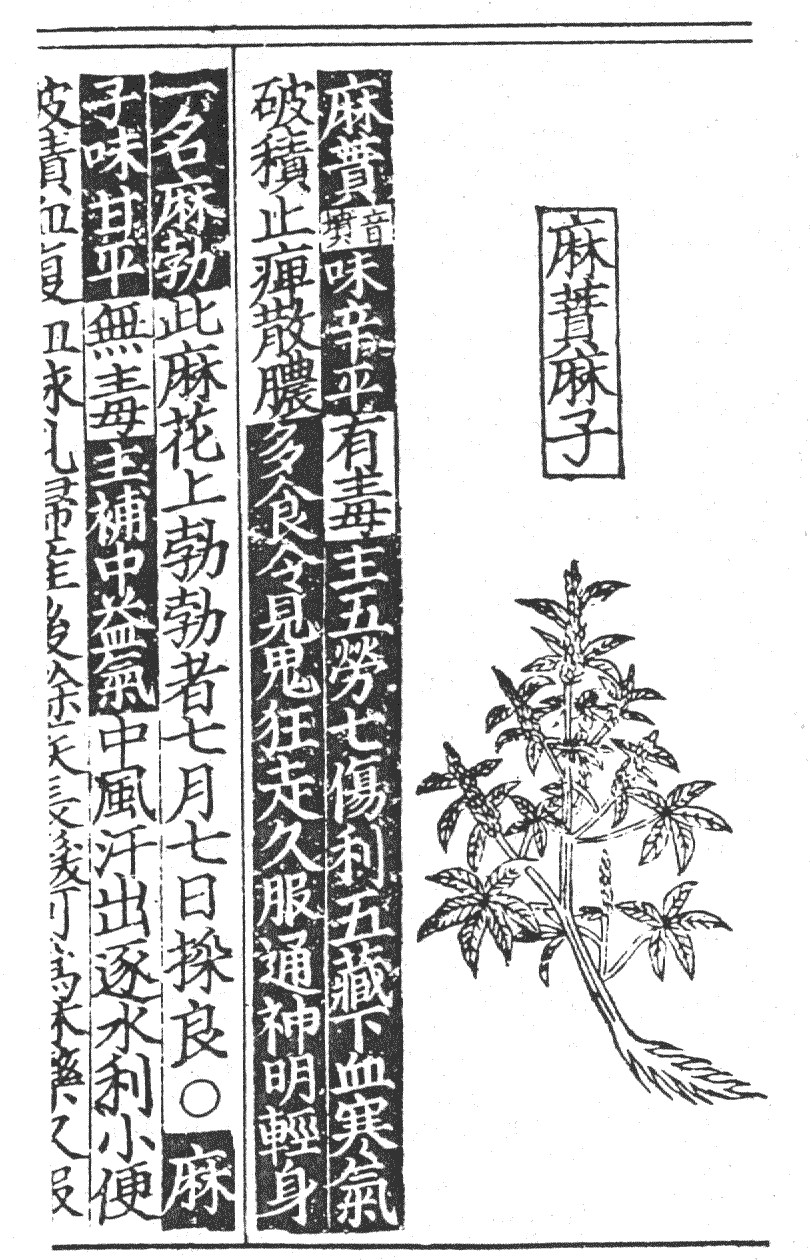 麻蕡麻子
麻蕡音墳味辛平有毒主五勞七傷利五藏下血寒氣
破積止痺散膿多食令見鬼狂走久服通神明輕身
一名麻勃此麻花上勃勃者七月七日採良○麻
子味甘平無毒主補中益氣中風汗出逐水利小便
破積血復血脉乳婦産後餘疾長髮可爲沐藥久服